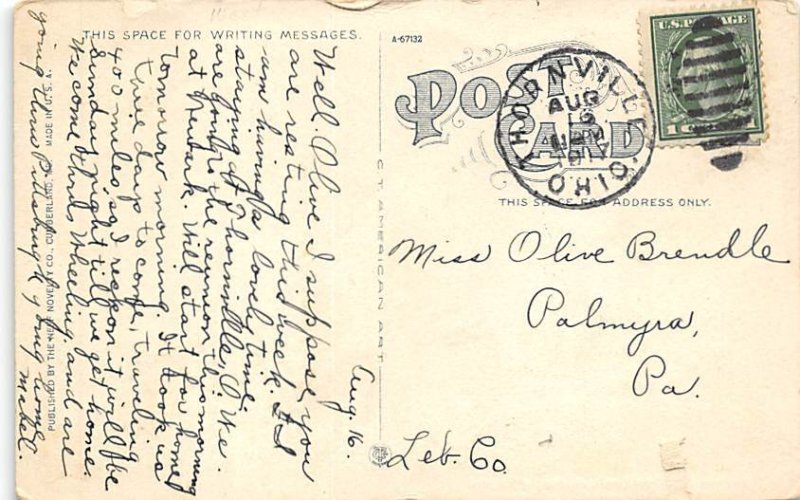 THIS SPACE FOR WRITING MESSAGES.
A-67132
POST CARD
THORNVILLE
AUG
16
OHIO.
U.S. POSTAGE
THIS SPACE FOR ADDRESS ONLY.
C. T. AMERICAN ART
Aug. 16.
Well. Olive I suppose you
are resting this week. I
am having a lovely time.
staying at Thornville, O. We
are going to the reunion this morning
at Newark. Will start for home
tomorrow morning. It took us
five days to come, traveling
400 miles, so I reckon it will be
Sunday night till we get home.
We come thro Wheeling and are
going thru Pittsburgh going home
Mabel.
PUBLISHED BY THE NOVELTY CO., CUMBERLAND, MADE IN U. S. A.
Miss Olive Brendle
Palmyra,
Pa.
Leb. Co.